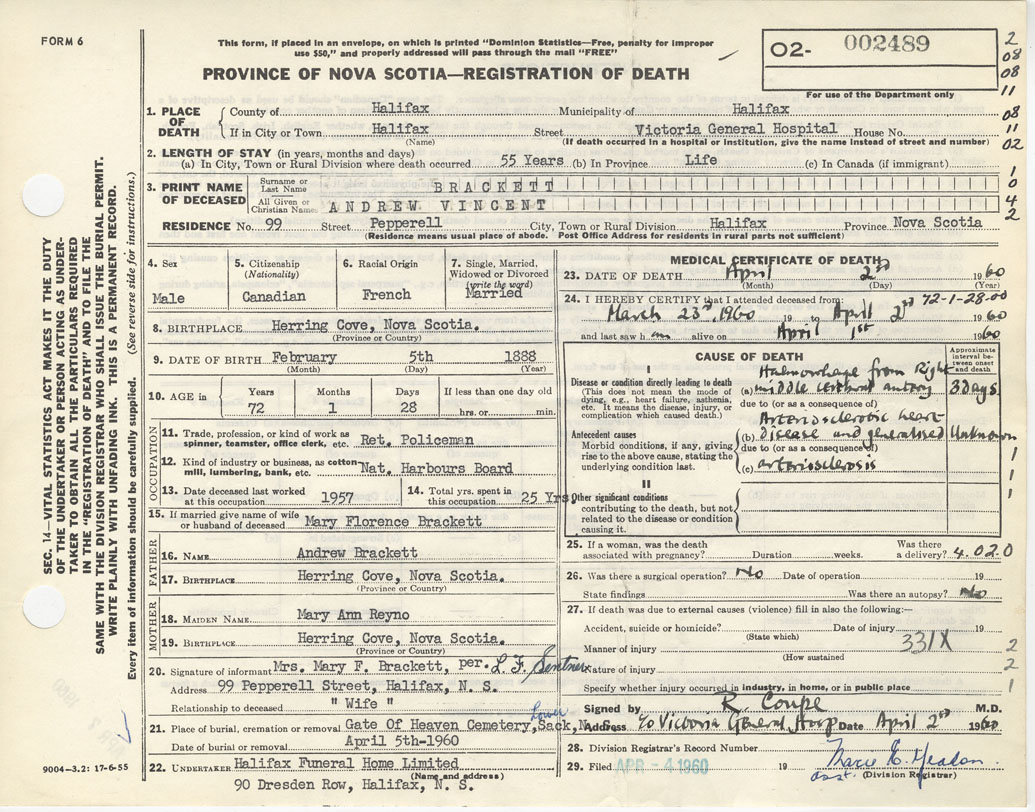 FORM 6
This form, if placed in an envelope, on which is printed "Dominion Statistics—Free, penalty for improper
use $50," and properly addressed will pass through the mail "FREE"
PROVINCE OF NOVA SCOTIA—REGISTRATION OF DEATH
O2- 002489
For use of the Department only
2
08
08
11
08
11
02
1
0
4
2
SEC. 14—VITAL STATISTICS ACT MAKES IT THE DUTY
OF THE UNDERTAKER OR PERSON ACTING AS UNDER-
TAKER TO OBTAIN ALL THE PARTICULARS REQUIRED
IN THE "REGISTRATION OF DEATH" AND TO FILE THE
SAME WITH THE DIVISION REGISTRAR WHO SHALL ISSUE THE BURIAL PERMIT.
WRITE PLAINLY WITH UNFADING INK. THIS IS A PERMANENT RECORD.
Every item of information should be carefully supplied. (See reverse side for instructions.)
1. PLACE OF DEATH
County of Halifax Municipality of Halifax
If in City or Town Halifax Street Victoria General Hospital House No.
(Name) (If death occurred in a hospital or institution, give the name instead of street and number)
2. LENGTH OF STAY (in years, months and days)
(a) In City, Town or Rural Division where death occurred 55 Years (b) In Province Life (c) In Canada (if immigrant)
3. PRINT NAME OF DECEASED
Surname or Last Name BRACKETT
All Given or Christian Names ANDREW VINCENT
RESIDENCE No. 99 Street Pepperell City, Town or Rural Division Halifax Province Nova Scotia
(Residence means usual place of abode. Post Office Address for residents in rural parts not sufficient)
4. Sex
Male
5. Citizenship
(Nationality)
Canadian
6. Racial Origin
French
7. Single, Married,
Widowed or Divorced
(write the word)
Married
8. BIRTHPLACE Herring Cove, Nova Scotia.
(Province or Country)
9. DATE OF BIRTH February 5th 1888
(Month) (Day) (Year)
10. AGE in
Years Months Days If less than one day old
72 1 28 hrs. or min.
OCCUPATION
11. Trade, profession, or kind of work as
spinner, teamster, office clerk, etc. Ret. Policeman
12. Kind of industry or business, as cotton
mill, lumbering, bank, etc. Nat. Harbours Board
13. Date deceased last worked
at this occupation 1957
14. Total yrs. spent in
this occupation 25 Yrs
15. If married give name of wife
or husband of deceased Mary Florence Brackett
FATHER
16. NAME Andrew Brackett
17. BIRTHPLACE Herring Cove, Nova Scotia.
(Province or Country)
MOTHER
18. MAIDEN NAME Mary Ann Reyno
19. BIRTHPLACE Herring Cove, Nova Scotia.
(Province or Country)
20. Signature of informant Mrs. Mary F. Brackett, per. L. F.
Address 99 Pepperell Street, Halifax, N. S.
Relationship to deceased " Wife "
Lower
21. Place of burial, cremation or removal Gate Of Heaven Cemetery, Sack, N. S.
Date of burial or removal April 5th-1960
22. UNDERTAKER Halifax Funeral Home Limited
(Name and address)
90 Dresden Row, Halifax, N. S.
9004-3.2: 17-6-55
MEDICAL CERTIFICATE OF DEATH
23. DATE OF DEATH April 2nd 1960
(Month) (Day) (Year)
24. I HEREBY CERTIFY that I attended deceased from: 72-1-28.00
March 23rd 1960 19 to April 2nd 1960
and last saw him alive on April 1st 1960
CAUSE OF DEATH
Approximate
interval be-
tween onset
and death
I
Disease or condition directly leading to death
(This does not mean the mode of
dying, e.g., heart failure, asthenia,
etc. It means the disease, injury, or
complication which caused death.)
Haemorrhage from Right
(a) middle cerebral artery 3 Days
due to (or as a consequence of)
Antecedent causes
Morbid conditions, if any, giving
rise to the above cause, stating the
underlying condition last.
Arteriosclerotic heart
(b) disease and generalised Unknown
due to (or as a consequence of)
(c) arteriosclerosis
1
1
1
II
Other significant conditions
contributing to the death, but not
related to the disease or condition
causing it.
25. If a woman, was the death
associated with pregnancy? Duration weeks.
Was there
a delivery? 4.020
26. Was there a surgical operation? No Date of operation 19
State findings Was there an autopsy? No
27. If death was due to external causes (violence) fill in also the following:—
Accident, suicide or homicide? Date of injury 19
(State which)
Manner of injury 331X 2
(How sustained)
Nature of injury 2
Specify whether injury occurred in industry, in home, or in public place 1
Signed by R. Coupe M.D.
Address c/o Victoria General Hosp Date April 2nd 1960
28. Division Registrar's Record Number
29. Filed APR - 4 1960 19 Marie E.
asst. (Division Registrar)